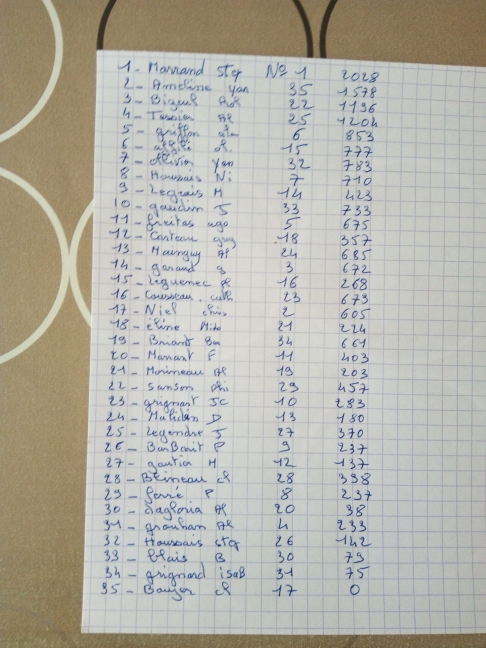 1 - Marrand step N° 1 2028
2 - Ameline Yan 35 1578
3 - Bizeul 22 1196
4 - Tessier Al 25 1204
5 - griffon ala 6 853
6 - 15 777
7 - Olivier Yan 32 783
8 - Houssais Ni 7 710
9 - Legeais M 14 423
10 - gaudin J 33 733
11 - freitas ago 5 675
12 - Carteau guy 18 357
13 - Mainguy Al 24 685
14 - garand g 3 672
15 - Leguenec 16 268
16 - Cousseau . cath 23 673
17 - Niel chris 2 605
18 - éline 21 224
19 - Briant 34 661
20 - Manant F 11 403
21 - Morineau Al 19 203
22 - Sanson Phi 29 457
23 - grignart JC 10 283
24 - D 13 180
25 - Legendre J 27 370
26 - BarBarit P 9 237
27 - gautier M 12 137
28 - Bléineau cl 28 398
29 - ferré P 8 237
30 - Dagloria Al 20 38
31 - Al 4 233
32 - Houssais step 26 142
33 - blais B 30 79
34 - grignard isaB 31 75
35 - cl 17 0